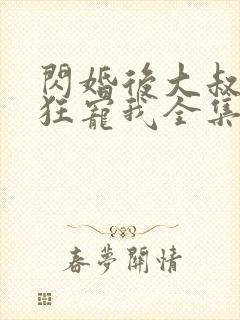 閃婚後大叔
狂寵我全集
春夢關情